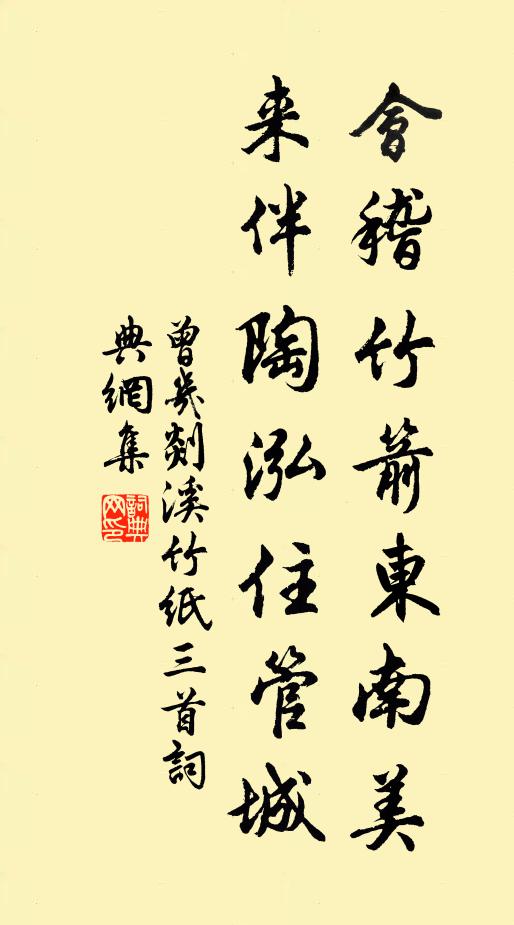 會稽竹箭東南美
来伴陶泓住管城
曾幾剡溪竹紙三首詞
典網集
詞典網印